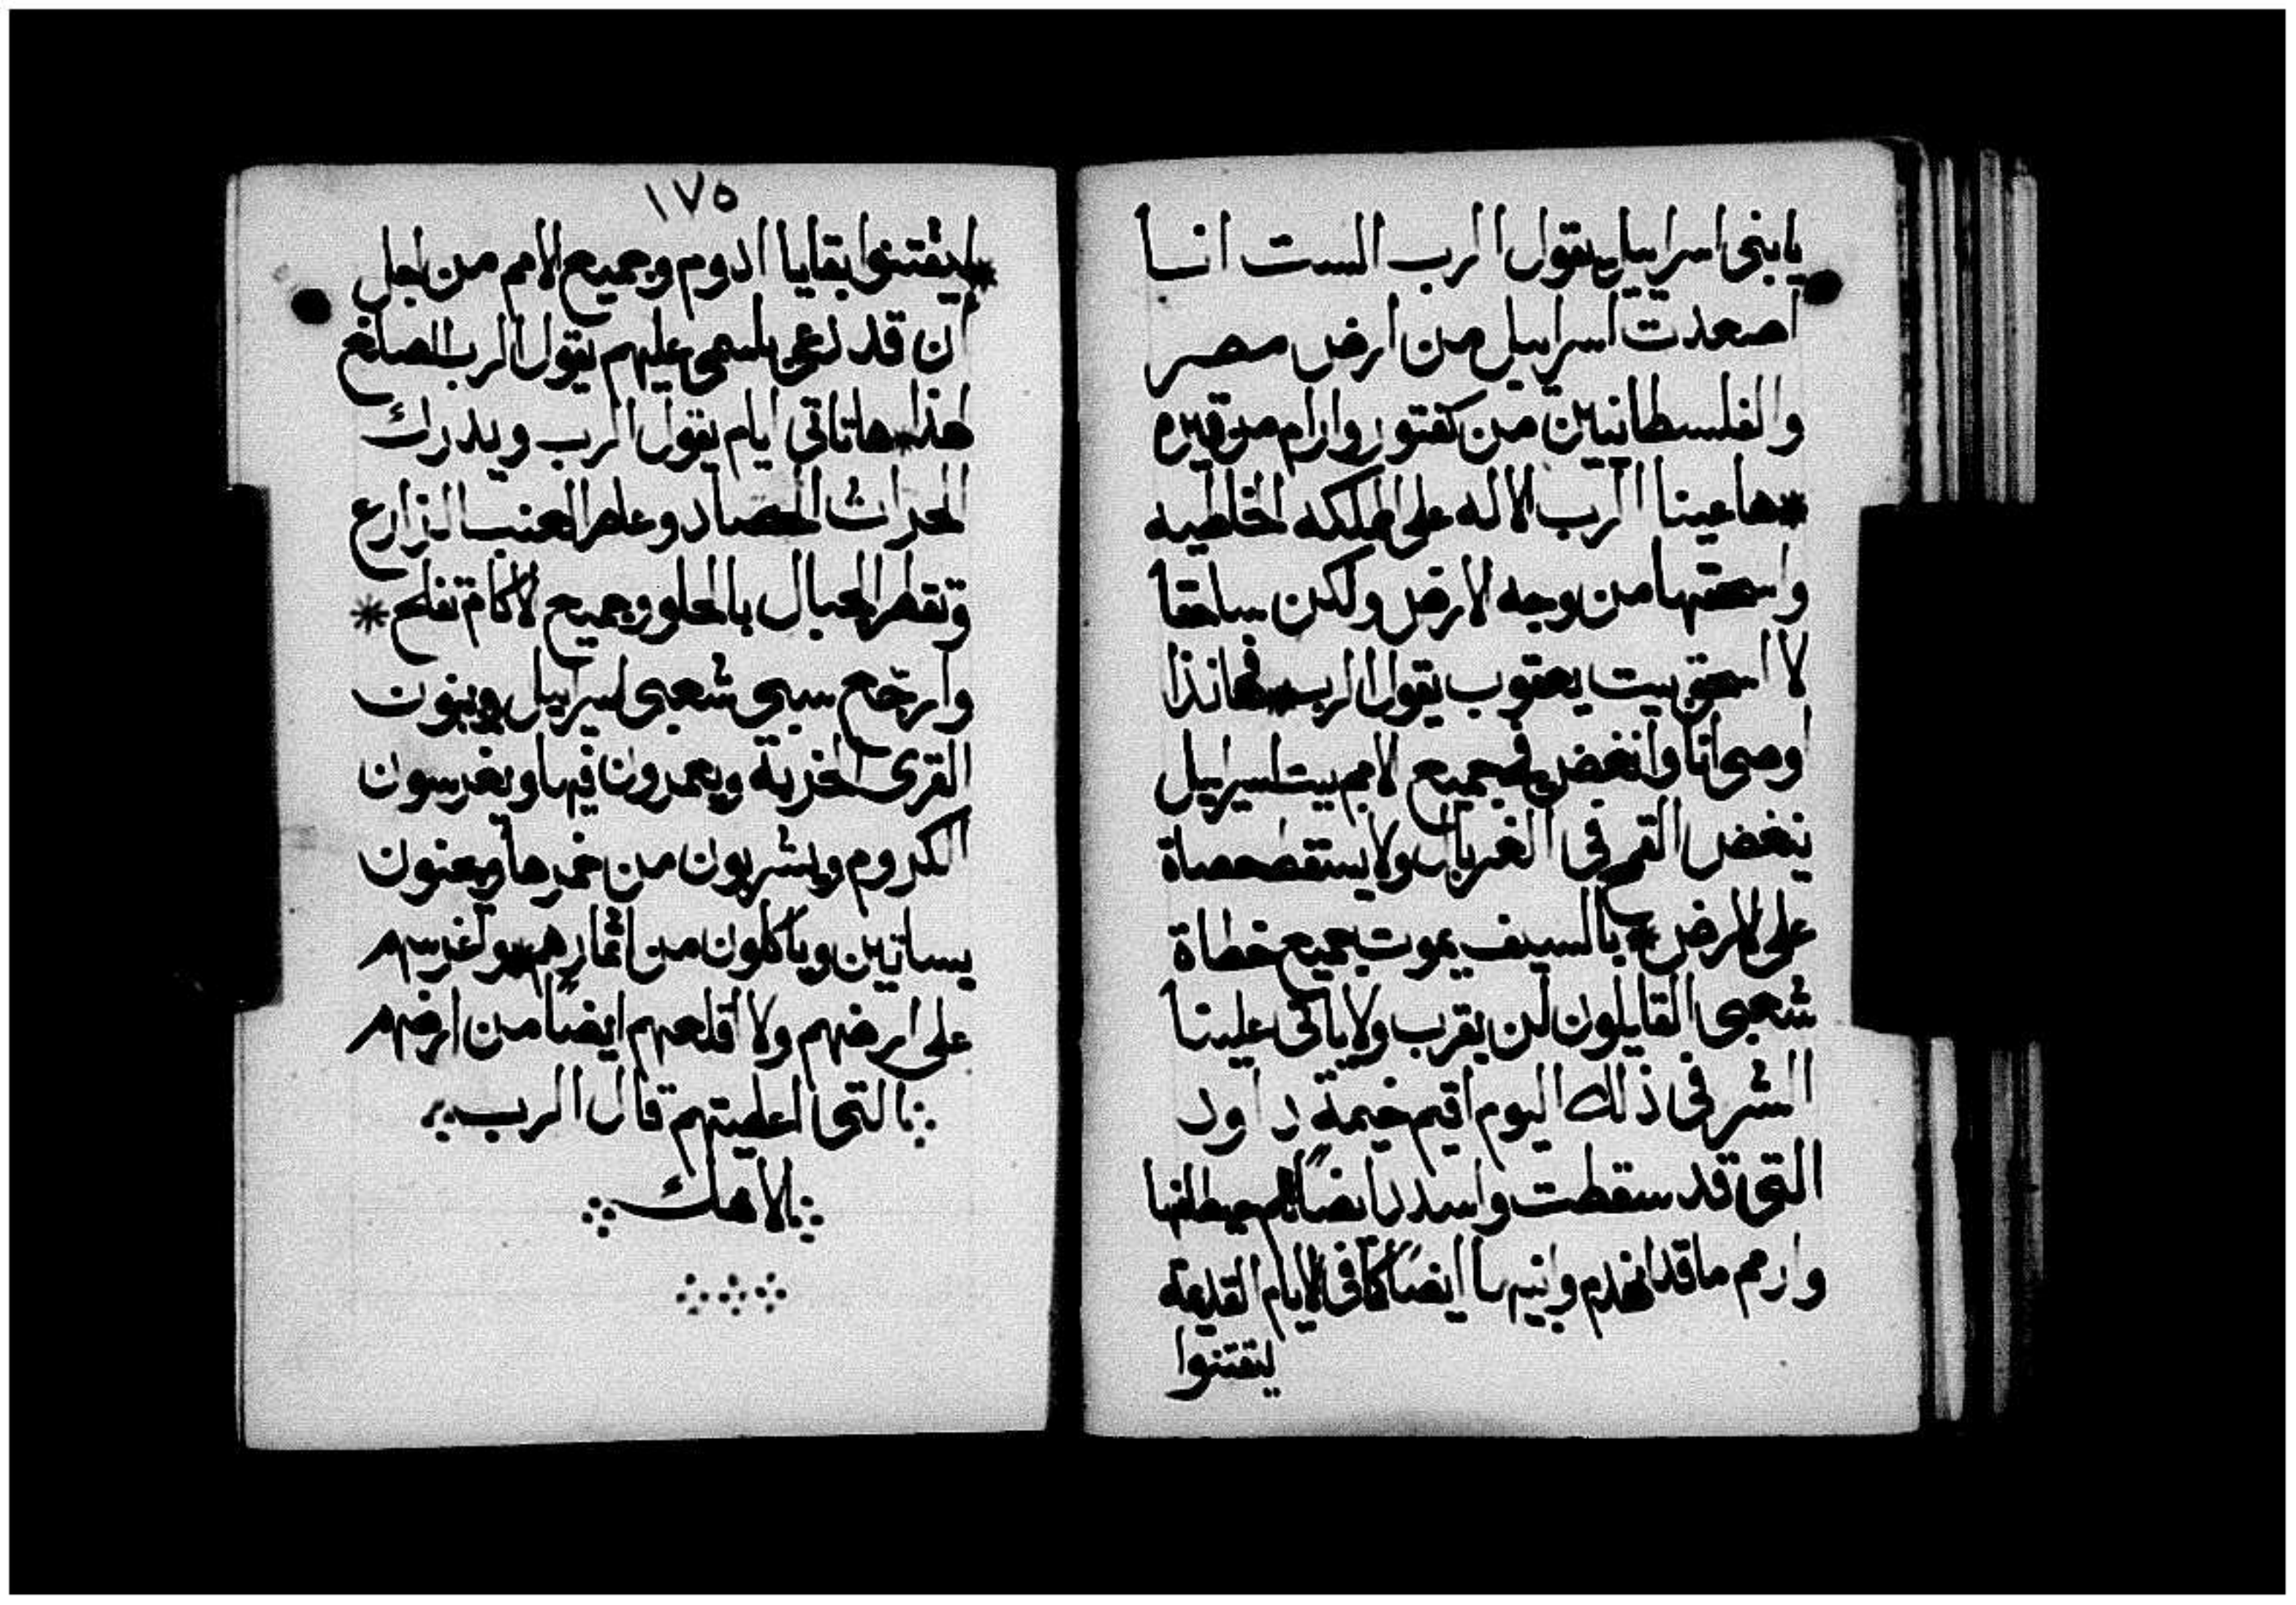 يابني اسراييل يقول الرب الست انا
اصعدت اسراييل من ارض مصر
والفلسطانيين من كفتور وارام من قيره
*ها عينا الرب الاله على المملكه الخاطيه
واسحقها من وجه الارض ولكن ساحقا
لا اسحق بيت يعقوب يقول الرب * فهانذا
اوصي انا وانغض في جميع الامم بيت اسراييل
ينغض القمح في الغربال ولا يسقط حصاة
على الارض * بالسيف يموت جميع خطاة
شعبي القايلون لن يقرب ولا ياتي علينا
الشر في ذلك اليوم اقيم خيمة داود
التي قد سقطت واسدد ايضًا حيطانها
وارمم ما قد انهدم وابنيها ايضًا كما في الايام القديمة
ليقتنوا
١٧٥
*ليقتنوا بقايا ادوم وجميع الامم من اجل
ان قد دعي باسمي عليهم يقول الرب الصانع
هذا * ها تاتي ايام يقول الرب ويدرك
الحراث الحصاد وعاصر العنب الزارع
وتقطر الجبال بالحلو وجميع الاكام تفلح *
وارجّع سبي شعبي اسراييل ويبنون
القرى الخربة ويعمرون فيها ويغرسون
الكروم ويشربون من خمرها ويصنعون
بساتين وياكلون من اثمارهم * واغرسهم
على ارضهم ولا اقلعهم ايضًا من ارضهم
التي اعطيتهم قال الرب
الاهك